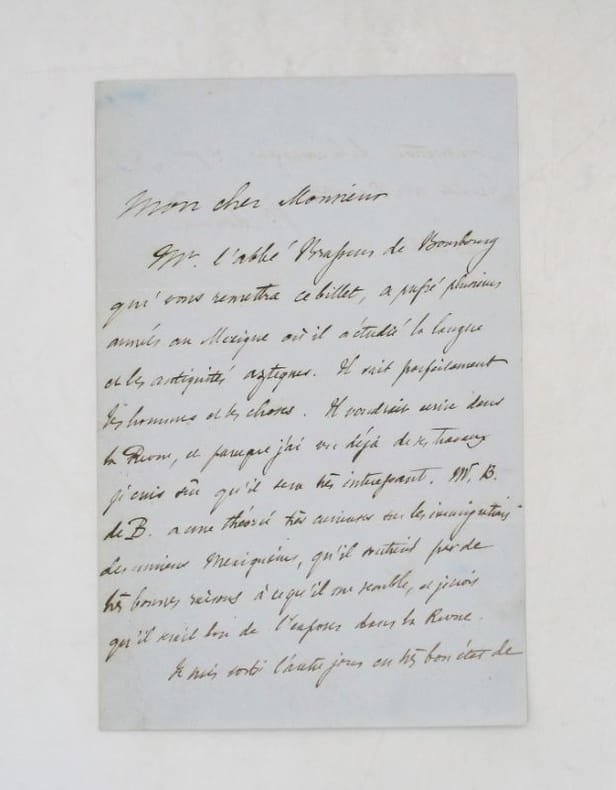 Mon cher Monsieur
Mr. l'abbé Brasseur de Bourbourg
qui vous remettra ce billet, a passé plusieurs
années au Mexique où il a étudié la langue
et les antiquités aztèques. Il sait parfaitement
les hommes et les choses. Il voudrait écrire dans
la Revue, et j'ai vu déjà de ses travaux
je suis sûr qu'il sera très intéressant. M. B.
de B. a une théorie très curieuse sur les immigrations
des anciens Mexicains, qu'il soutient par de
très bonnes raisons à ce qu'il me semble, et je crois
qu'il serait bon de l'exposer dans la Revue.
Je suis sorti l'autre jour en très bon état de